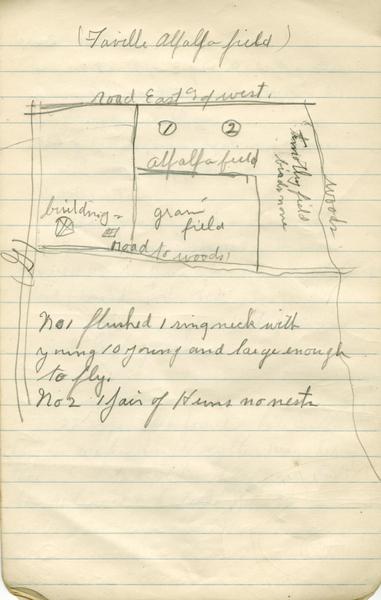 (Faville Alfalfa field)
road East & west.
1 2
alfalfa field
timothy field
birds none
woods
buildings
grain
field
road to woods
No 1 flushed 1 ringneck with
young 10 young and large enough
to fly.
No 2 1 pair of Huns no nests